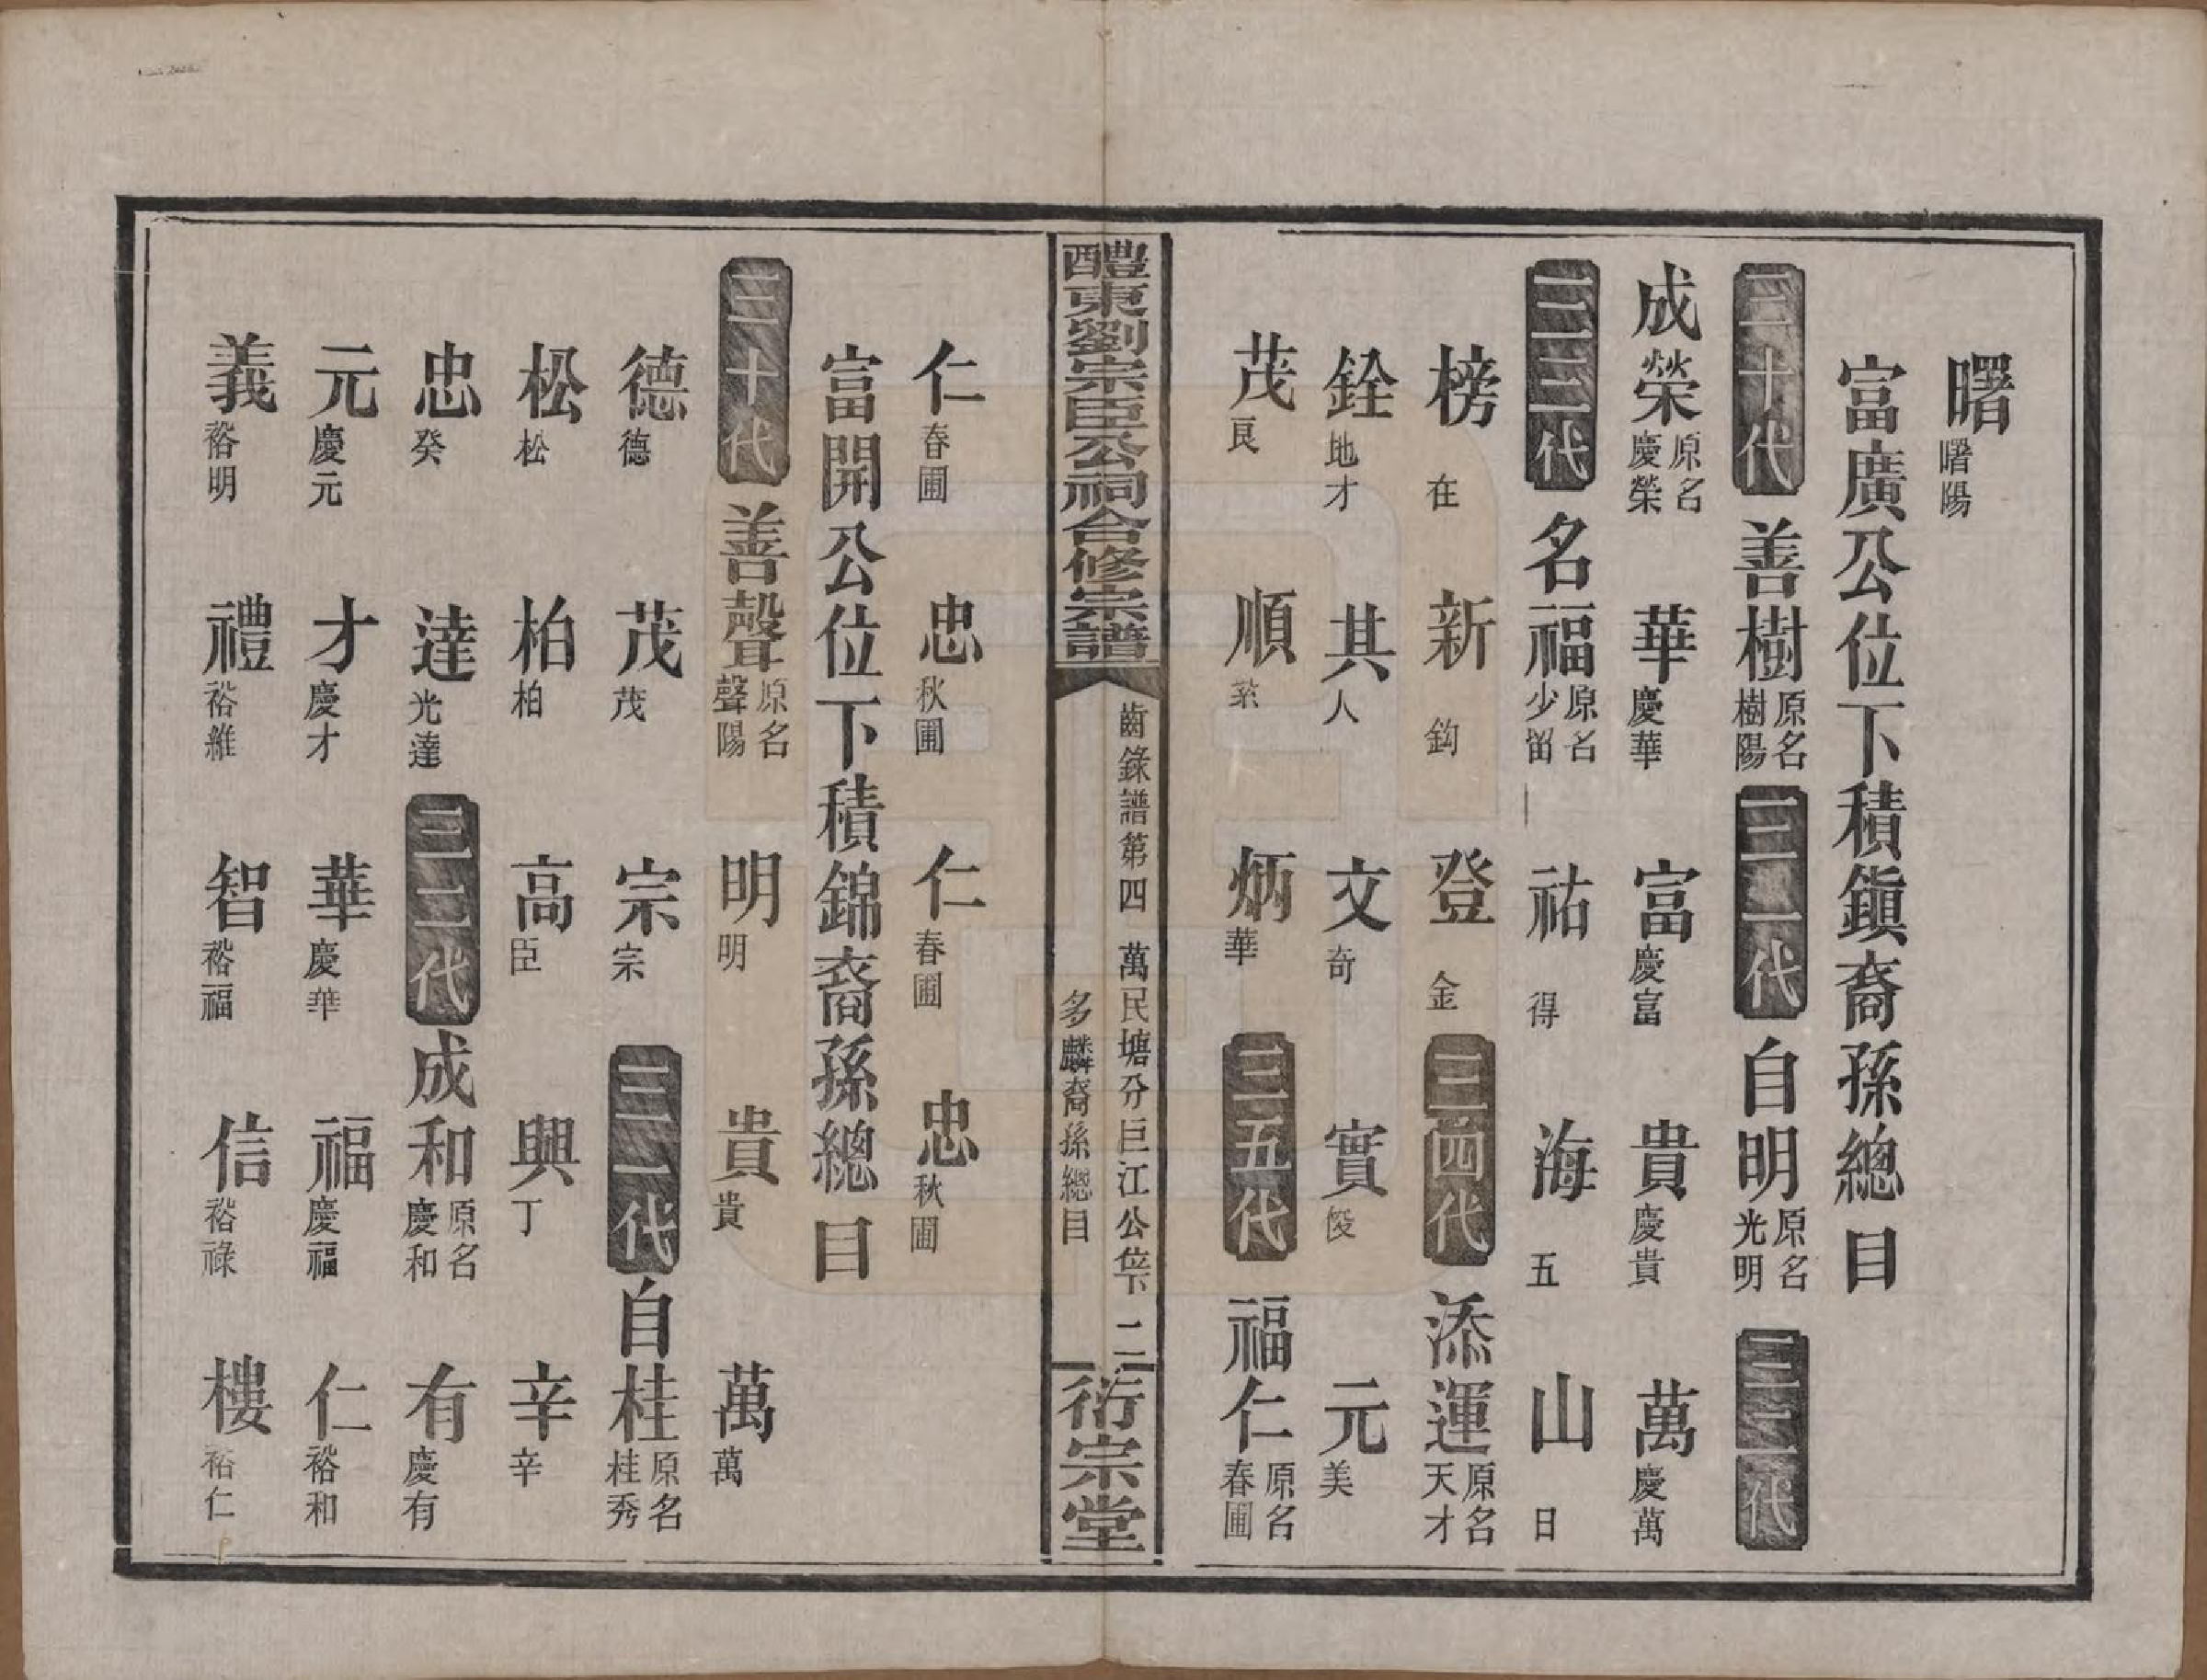 曙曙陽
富廣公位下積鎮裔孫總目
三十代 善樹原名樹陽 三一代 自明原名光明 三二代
成榮原名慶榮 華慶華 富慶富 貴慶貴 萬慶萬
三三代 名福原名少留 祐得 海五 山日
榜在 新鈎 登金 三四代 添運原名天才
銓地才 其人 文奇 實俊 元美
茂良 順 炳華 三五代 福仁原名春圃
醴東劉宗臣公祠合修宗譜
齒錄譜第四 萬民塘分巨江公位下 二
多麟裔孫總目
衍宗堂
仁春圃 忠秋圃 仁春圃 忠秋圃
富開公位下積錦裔孫總目
三十代 善聲原名聲陽 明明 貴貴 萬萬
德德 茂茂 宗宗 三一代 自桂原名桂秀
松松 柏柏 高臣 興丁 辛辛
忠癸 達光達 三二代 成和原名慶和 有慶有
元慶元 才慶才 華慶華 福慶福 仁裕和
義裕明 禮裕維 智裕福 信裕祿 樓裕仁